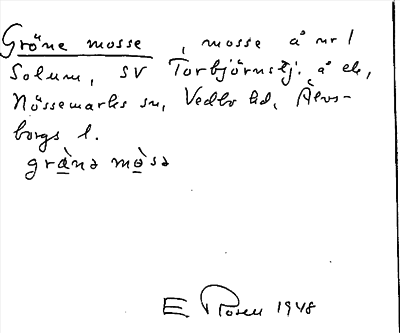 Gröne mosse, mosse å nr 1
Solum, SV Torbjörnstj. å ek,
Nössemarks sn, Vedbo hd, Älvs-
borgs l.
græ̀nə mo̱sə
E Rosen 1948